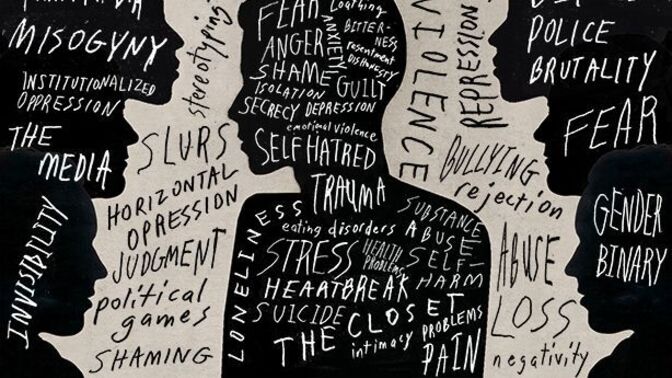 MISOGYNY
INSTITUTIONALIZED
OPPRESSION
THE
MEDIA
INVISIBILITY
stereotyping
SLURS
HORIZONTAL
OPRESSION
JUDGMENT
political
games
SHAMING
FEAR
ANGER
SHAME
ISOLATION
ANXIETY
Loathing
BITTER-
NESS
resentment
DISHONESTY
GUILT
SECRECY DEPRESSION
emotional violence
SELF HATRED
TRAUMA
LONELINESS
eating disorders
STRESS
HEALTH
PROBLEMS
SUBSTANCE
ABUSE
SELF-
HARM
HEARTBREAK
SUICIDE
THE CLOSET
intimacy
PROBLEMS
PAIN
VIOLENCE
REPRESSION
BULLYING
rejection
ABUSE
LOSS
negativity
POLICE
BRUTALITY
FEAR
GENDER
BINARY